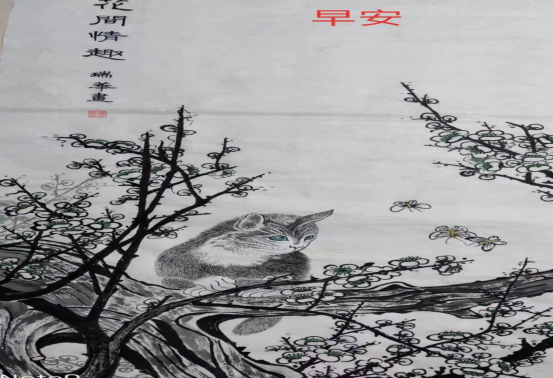 早安
花間情趣
瑞華畫
Note8